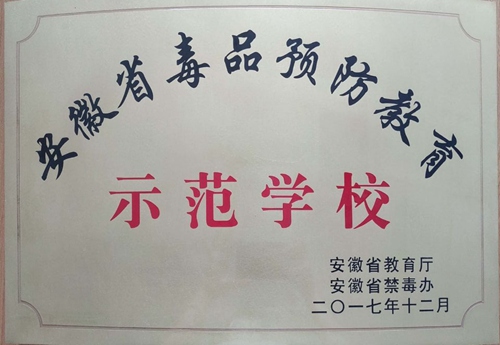 安徽省毒品预防教育
示范学校
安徽省教育厅
安徽省禁毒办
二〇一七年十二月